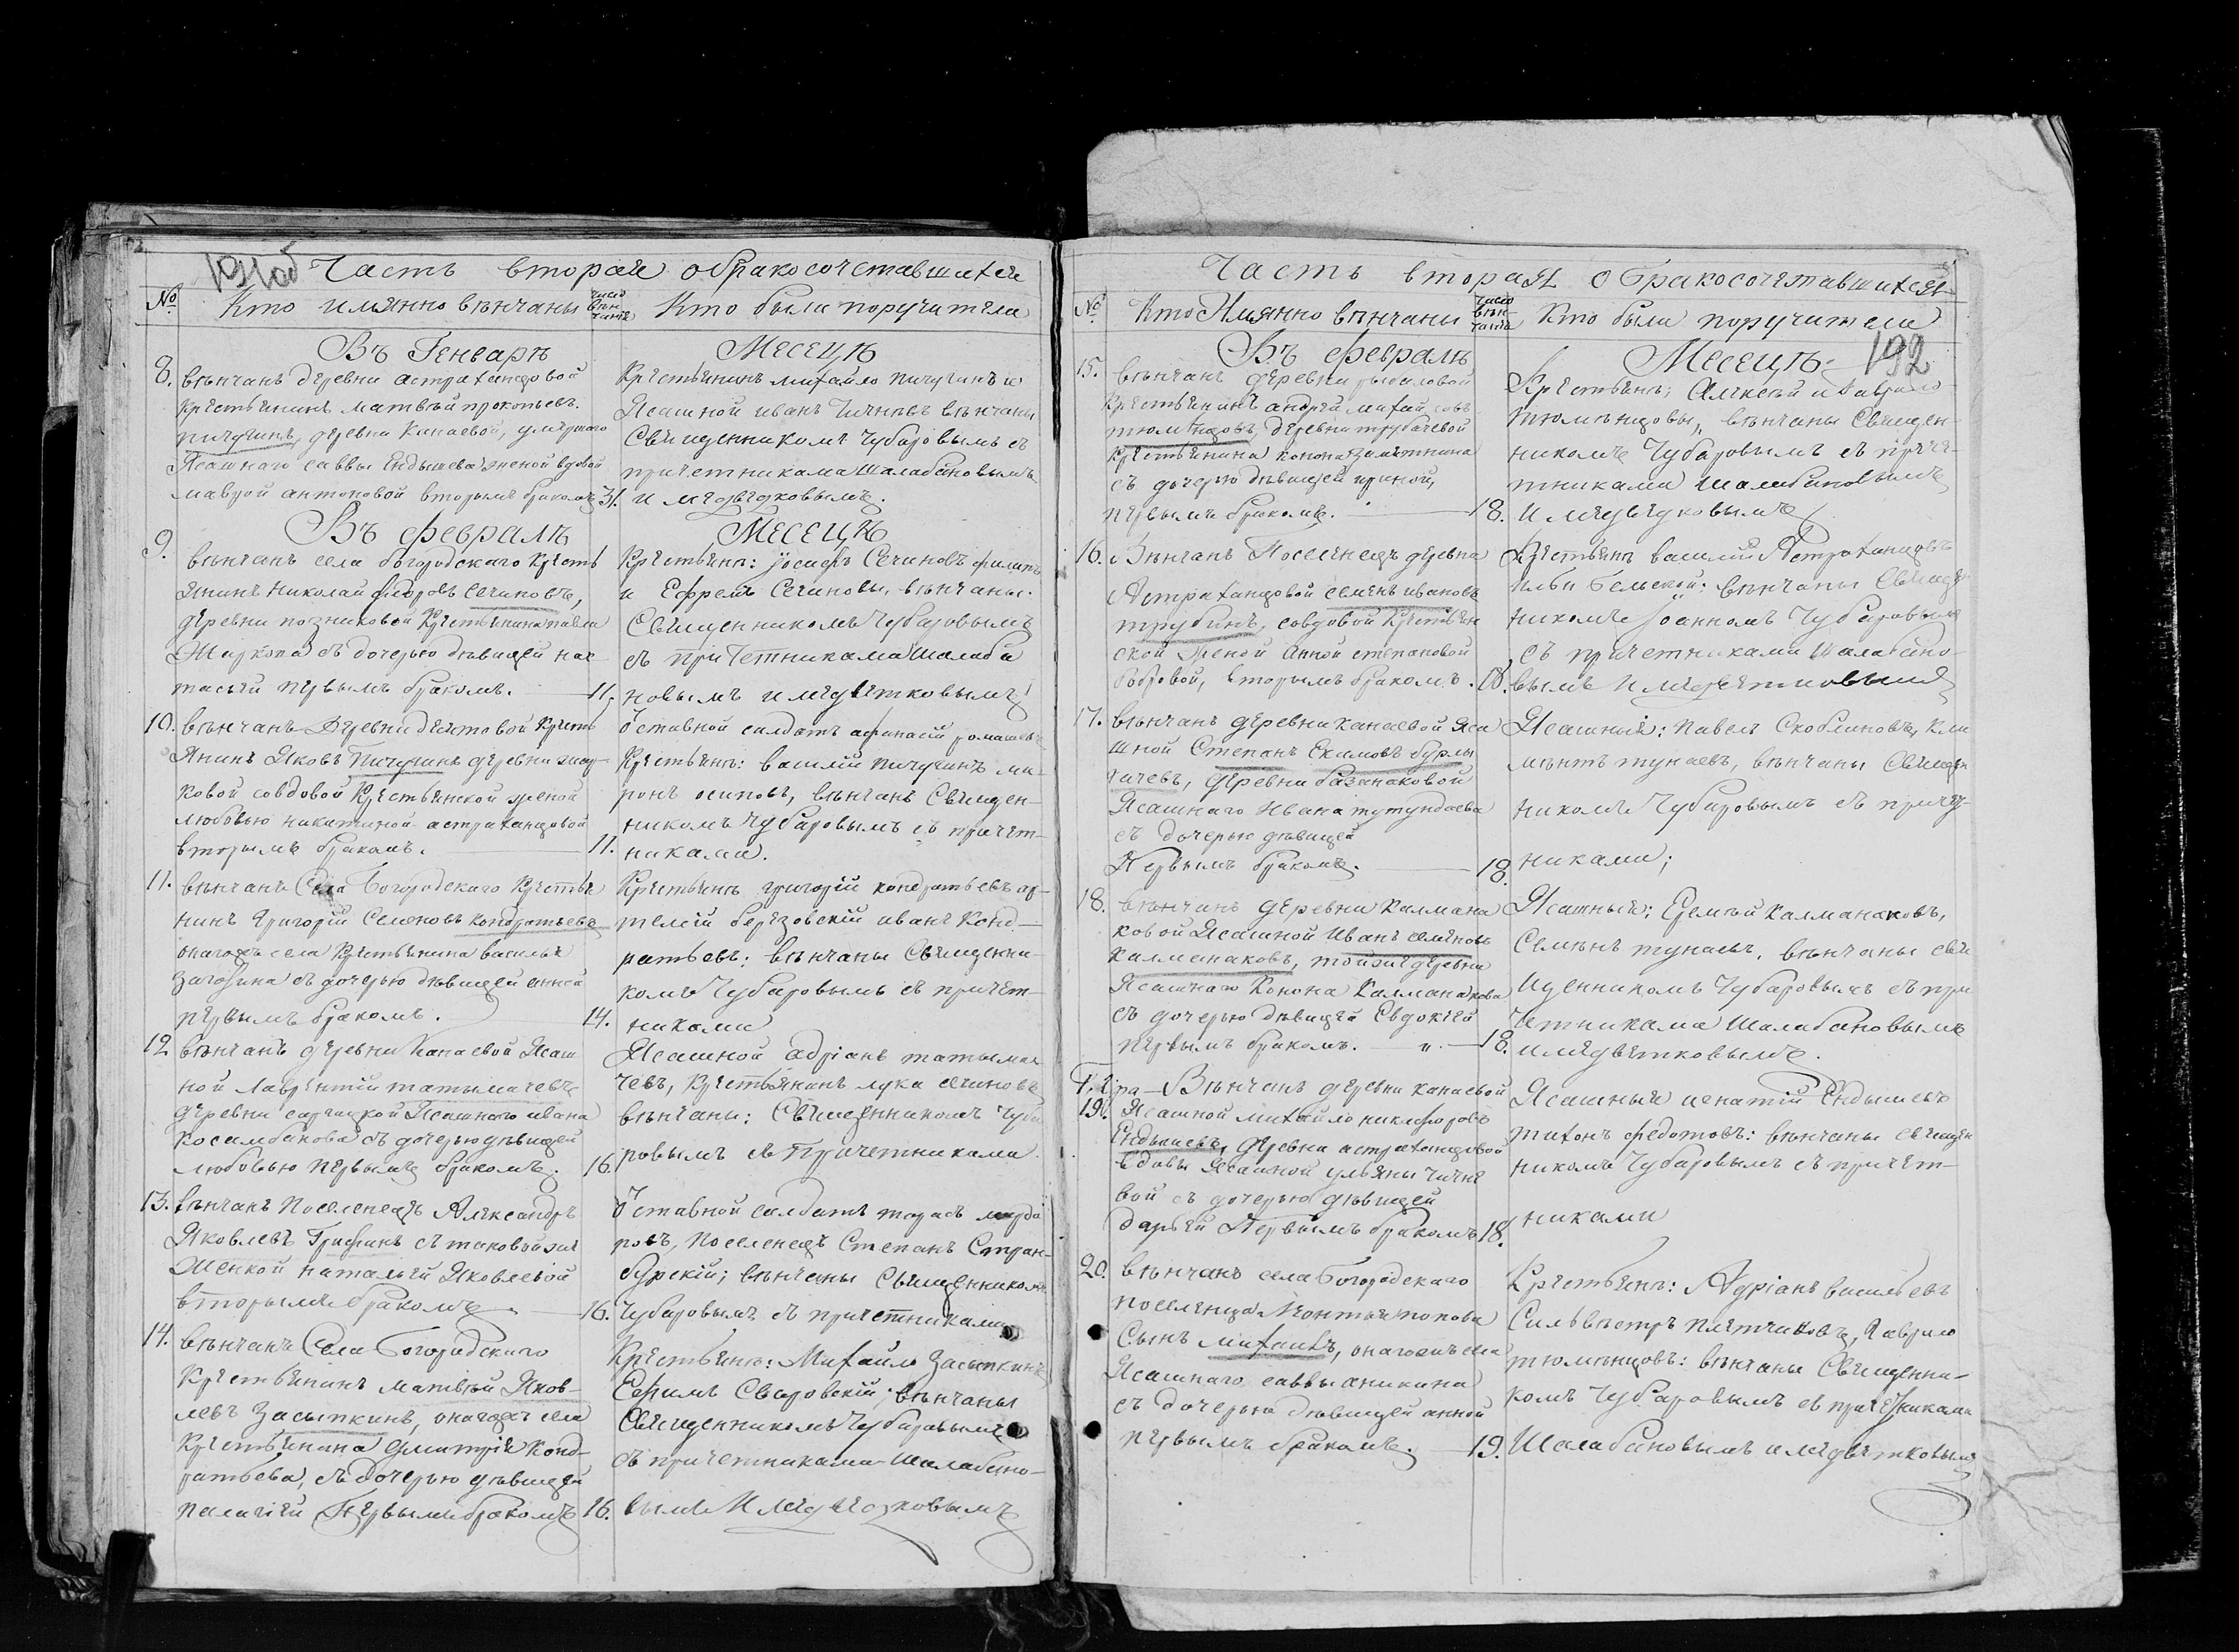 191об
Часть вторая о бракосочетавшихся
№ Кто имянно венчаны число венчания Кто были поручители
Въ Генваре Месеце
8. венчанъ деревни астраханцовой
крестьянинъ матвей прокопьевъ
пичугинъ, деревни Канаевой, умершаго
Ясашнаго саввы Ендышева женой вдовой
маврой антоновой вторымъ бракомъ 31.
Крестьянинъ михайло пичугинъ и
Ясашной иванъ венчаны
Священникомъ Чубаровымъ съ
причетниками Шалабановымъ
и медведковымъ.
Въ феврале Месеце
9. венчанъ села богородскаго Кресть
янинъ николай федоровъ Сечиновъ,
деревни позниковой Крестьянина павла
Жаркова съ дочерью девицей нас
тасьей первымъ бракомъ. 11.
Крестьяне: Іосифъ Сечиновъ филипъ
и Ефремъ Сечиновы, венчаны
Священникомъ Чубаровымъ
съ причетниками Шалаба
новымъ и медветковымъ
10. венчанъ Деревни Кресть
янинъ Яковъ Пичугинъ деревни
ковой совдовой Крестьянской женой
любовью никитиной астраханцовой
вторымъ бракомъ. 11.
Отставной салдатъ афанасій
Крестьяне: василій пичугинъ ми
ронъ осиповъ, венчанъ Священ-
никомъ Чубаровымъ съ причет-
никами.
11. венчанъ Села Богородскаго Крестья
нинъ Григорій Семеновъ кондратьевъ
онагожъ села Крестьянина василья
съ дочерью девицей анной
первымъ бракомъ. 14.
Крестьяне григорій кондратьевъ ар-
телій березовскій иванъ Конд-
ратьевъ: венчаны Священни-
комъ Чубаровымъ съ причет-
никами
12 венчанъ деревни Канаевой Ясаш
ной лаврентій татымачевъ
деревни Ясашнаго ивана
косамбакова съ дочерью девицей
любовью первымъ бракомъ. 16.
Ясашной адріанъ татыма
чевъ, крестьянинъ лука сечиновъ
венчаны: Священникомъ Чуба
ровымъ съ Причетниками
13. венчанъ Поселенецъ Александръ
Яковлевъ Грифинъ с таковойже
Женкой натальей Яковлевой
вторымъ бракомъ 16.
Отставной салдатъ тарасъ
ровъ, поселенецъ Степанъ Стран-
бурскій; венчаны Священникомъ
Чубаровымъ съ причетниками
14. венчанъ Села Богородскаго
Крестьянинъ матвей Яков-
левъ Засыпкинъ, онагожъ села
Крестьянина дмитрія Конд-
ратьева, съ дочерью девицей
палагіей Первымъ бракомъ 16.
Крестьяне: Михайло Засыпкинъ
Ефимъ Сваровскій; венчаны
Священникомъ Чубаровымъ
съ причетниками Шалабано-
вымъ И медведковымъ
192
Часть вторая о Бракосочетавшихся
№ Кто Имянно венчаны число венчания Кто были поручители
Въ феврале Месеце
15. венчанъ деревни рыбаловой
Крестьянинъ андрей михайловъ
тюменцовъ, деревни трубачевой
крестьянина конона замятнина
съ дочерью девицей ириной,
первымъ бракомъ. 18.
Крестьяне; Алексей и Гаврило
тюменцовы, венчаны Священ-
никомъ Чубаровымъ съ приче-
тниками Шалабановымъ
И медведковымъ
16. Венчанъ Поселенецъ деревни
Астраханцовой семенъ ивановъ
трубинъ, совдовой Крестьян
ской женой Анной степановой
бобровой, вторымъ бракомъ. 18.
Крестьяне василий Астраханцовъ
илья Бельской: венчаны Священ
никомъ Іоанномъ Чубаровымъ
съ причетниками Шалабано-
вымъ И медветковымъ
17. венчанъ деревни канаевой Яса
шной Степанъ Екимовъ бурлы
гачевъ, деревни базанаковой
Ясашнаго Ивана тутундаева
съ дочерью девицей
Первымъ бракомъ. 18.
Ясашные: Павелъ Скоблиновъ, Кли
ментъ тунаевъ, венчаны Священ
никомъ Чубаровымъ съ причет-
никами;
18. венчанъ деревни Калмана
ковой Ясашной Иванъ семеновъ
калманаковъ, тойже деревни
Ясашнаго Конона Калманакова
съ дочерью девицей Евдокіей
первымъ бракомъ. " 18.
Ясашные; Еремей Калманаковъ,
Семенъ тунаевъ, венчаны свя
щенникомъ Чубаровымъ съ при
четниками Шалабановымъ
и медветковымъ.
19. Венчанъ деревни канаевой
Ясашной михайло никифоровъ
Ендышевъ, деревни астраханцовой
вдовы Ясашной ульяны
вой съ дочерью девицей
дарьей Первымъ бракомъ 18.
Ясашные игнатій Ендышевъ
тихонъ федотовъ: венчаны священ
никомъ Чубаровымъ съ причет-
никами
20. венчанъ села Богородскаго
поселенца Леонтья попова
Сынъ михаилъ, онагожъ села
Ясашнаго саввы аникина
съ дочерью девицей анной
первымъ бракомъ. 19.
Крестьяне: Адріанъ васильевъ
Сильвестръ плетниковъ, Гаврило
тюменцовъ: венчаны Священни-
комъ Чубаровымъ съ причетниками
Шалабановымъ и медветковымъ